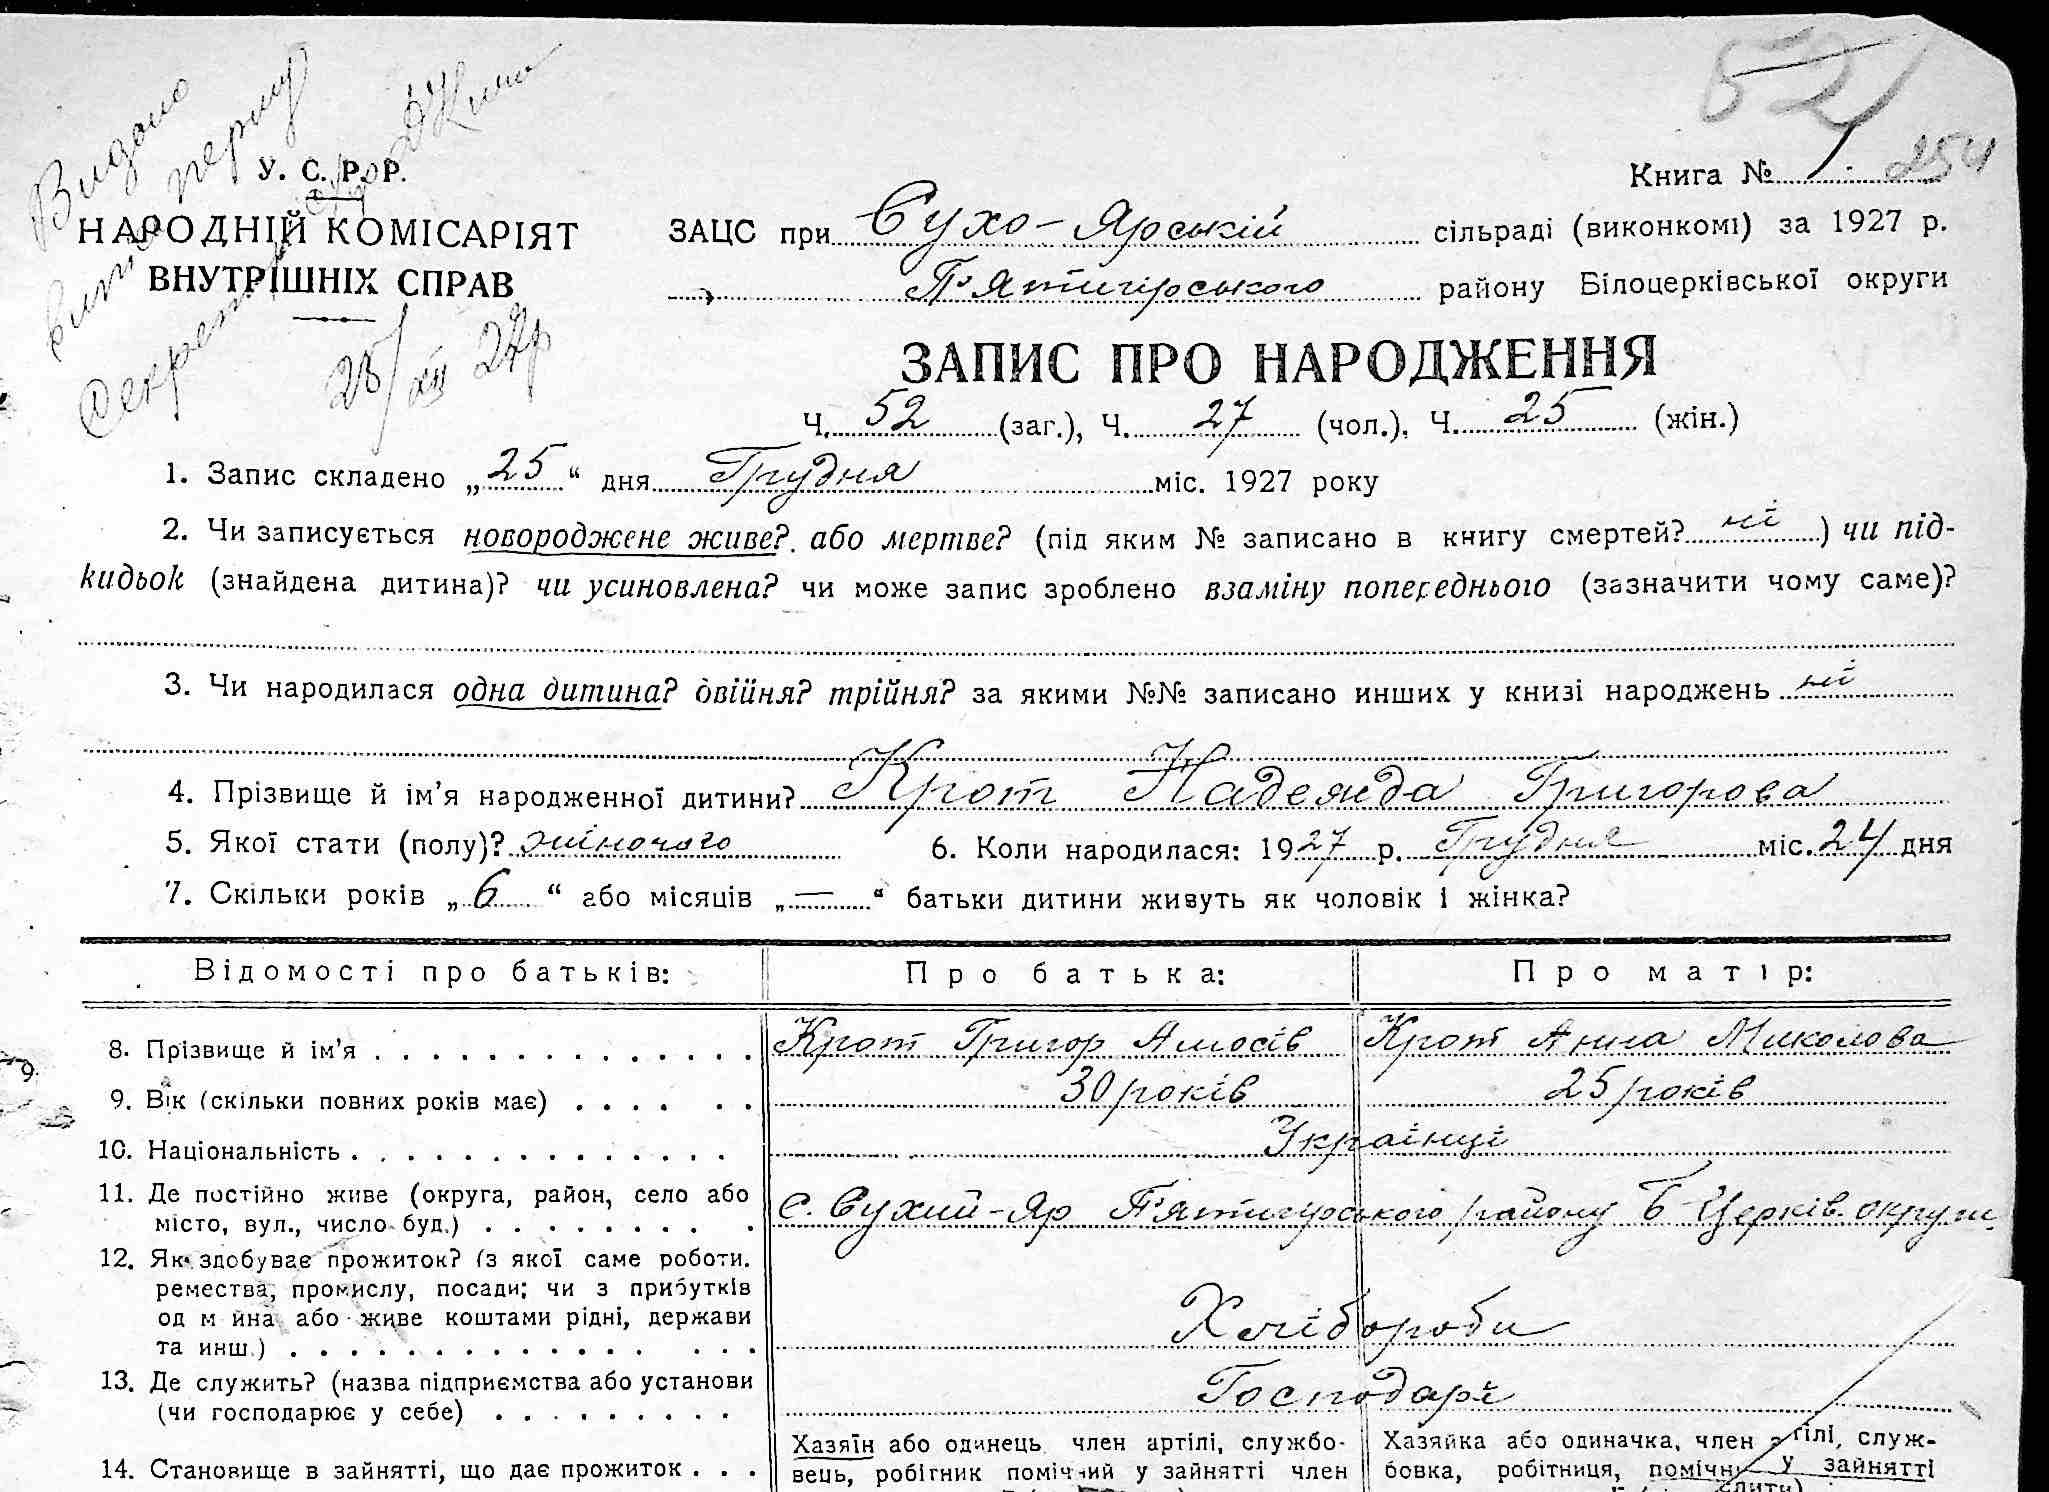 52
254
Видано
першу
У. С. Р. Р.
Книга № 1.
НАРОДНІЙ КОМІСАРІЯТ
ВНУТРІШНІХ СПРАВ
ЗАЦС при Сухо-Ярській сільраді (виконкомі) за 1927 р.
П'ятигірського району Білоцерківської округи
25/XII 27р
ЗАПИС ПРО НАРОДЖЕННЯ
Ч. 52 (заг.), Ч. 27 (чол.), Ч. 25 (жін.)
1. Запис складено „25“ дня Грудня міс. 1927 року
2. Чи записується новороджене живе? або мертве? (під яким № записано в книгу смертей? ні ) чи під-
кидьок (знайдена дитина)? чи усиновлена? чи може запис зроблено взаміну попереднього (зазначити чому саме)?
3. Чи народилася одна дитина? двійня? трійня? за якими №№ записано инших у книзі народжень ні
4. Прізвище й ім'я народженної дитини? Крот Надежда Григорова
5. Якої стати (полу)? жіночого 6. Коли народилася: 1927 р. Грудня міс. 24 дня
7. Скільки років „6“ або місяців „—“ батьки дитини живуть як чоловік і жінка?
Відомості про батьків: Про батька: Про матір:
8. Прізвище й ім'я . . . . . . . . . . . . . . Крот Григор Амосів Крот Анна Миколова
9. Вік (скільки повних років має) . . . . . . 30 років 25 років
10. Національність . . . . . . . . . . . . . . Українці
11. Де постійно живе (округа, район, село або
місто, вул., число буд.) . . . . . . . . . с. Сухий-Яр П'ятигурського району Б-Церків. округи.
12. Як здобуває прожиток? (з якої саме роботи.
ремества, промислу, посади; чи з прибутків
од м йна або живе коштами рідні, держави
та инш.) . . . . . . . . . . . . . . . . Хлібороби
13. Де служить? (назва підприємства або установи
(чи господарює у себе) . . . . . . . . . Господарі
14. Становище в зайнятті, що дає прожиток . . .
Хазяїн або одинець член артілі, службо-
вець, робітник помічний у зайнятті член
Хазяйка або одиначка, член артілі, служ-
бовка, робітниця, помічн. у зайнятті